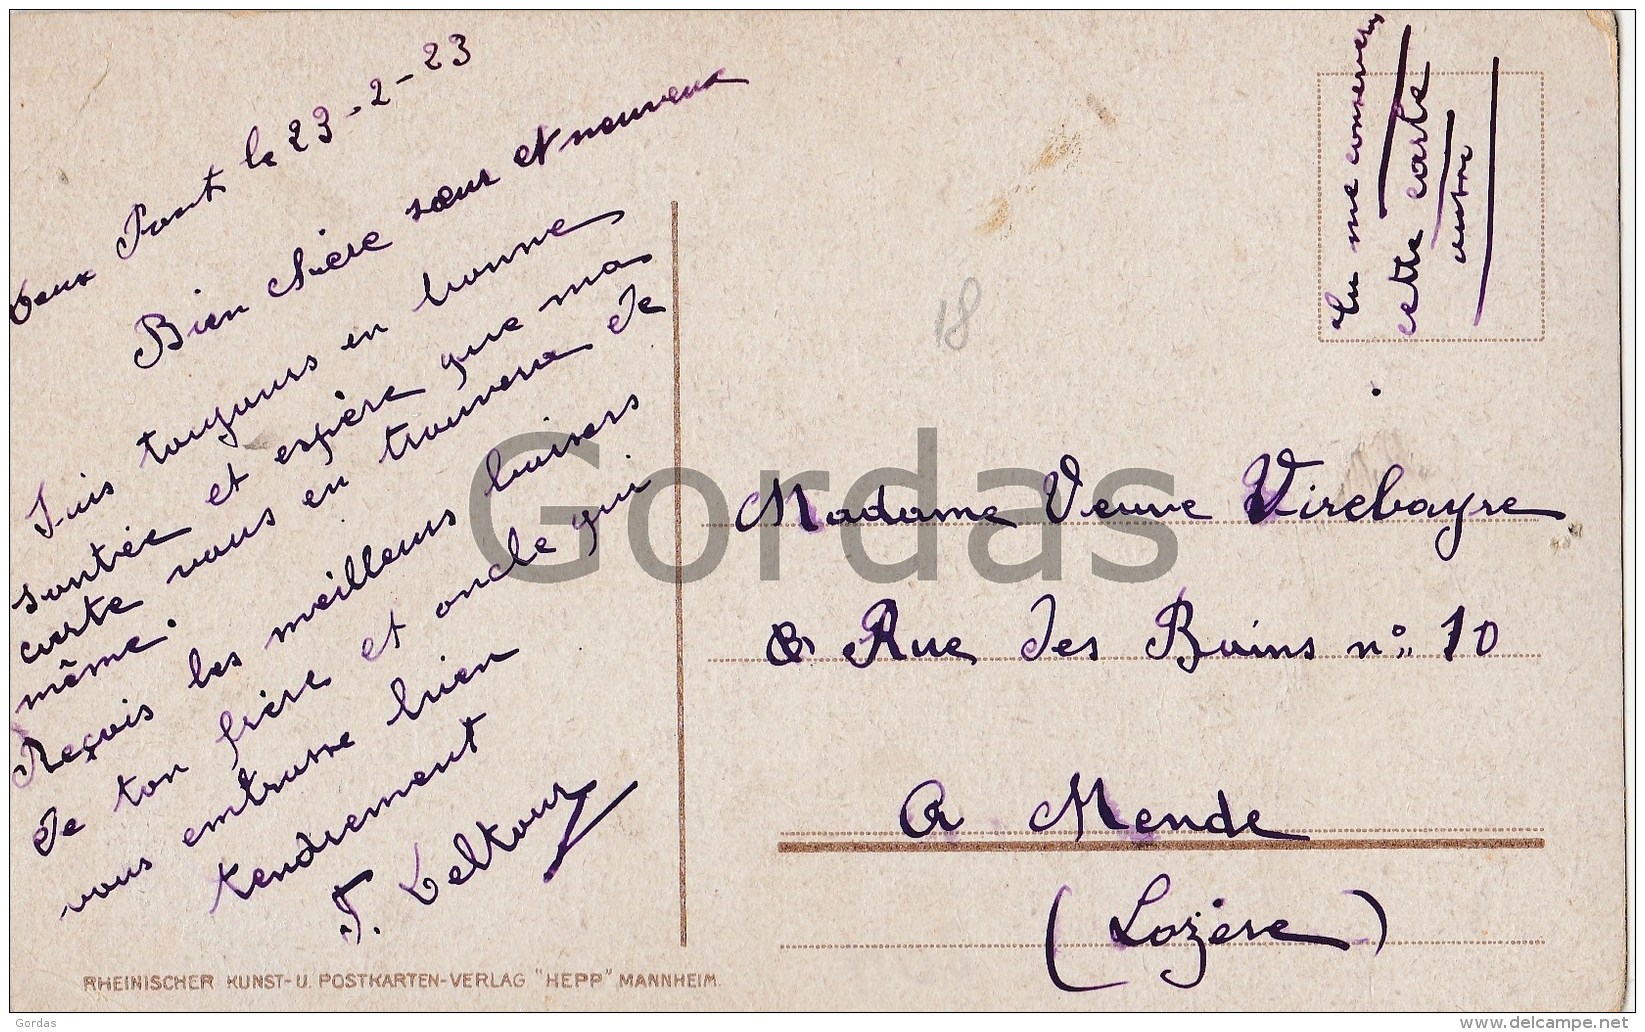 Deux Pont le 23-2-23
Bien chière sœur et neuveux
Suis toujours en bonne
santée et espère que ma
carte vous en trouvera de
même.
Reçois les meilleurs baisers
de ton frère et oncle qui
vous embrasse bien
tendrement
Tu me conservera
cette carte
Madame Veuve Virebayre
Rue des Bains n° 10
A Mende
(Lozère)
18
RHEINISCHER KUNST- U. POSTKARTEN-VERLAG "HEPP" MANNHEIM.
Gordas
Gordas
www.delcampe.net